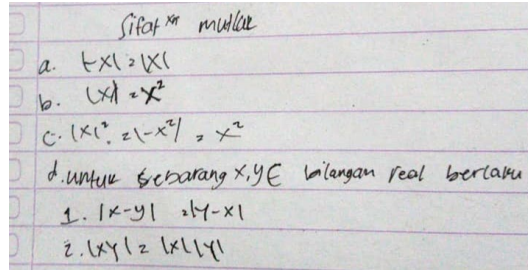 Sifat mutlak
a. |-x| = |x|
b. |x| = x²
c. |x|² = |-x²| = x²
d. untuk sebarang x, y ∈ bilangan real berlaku
1. |x-y| = |y-x|
2. |xy| = |x||y|